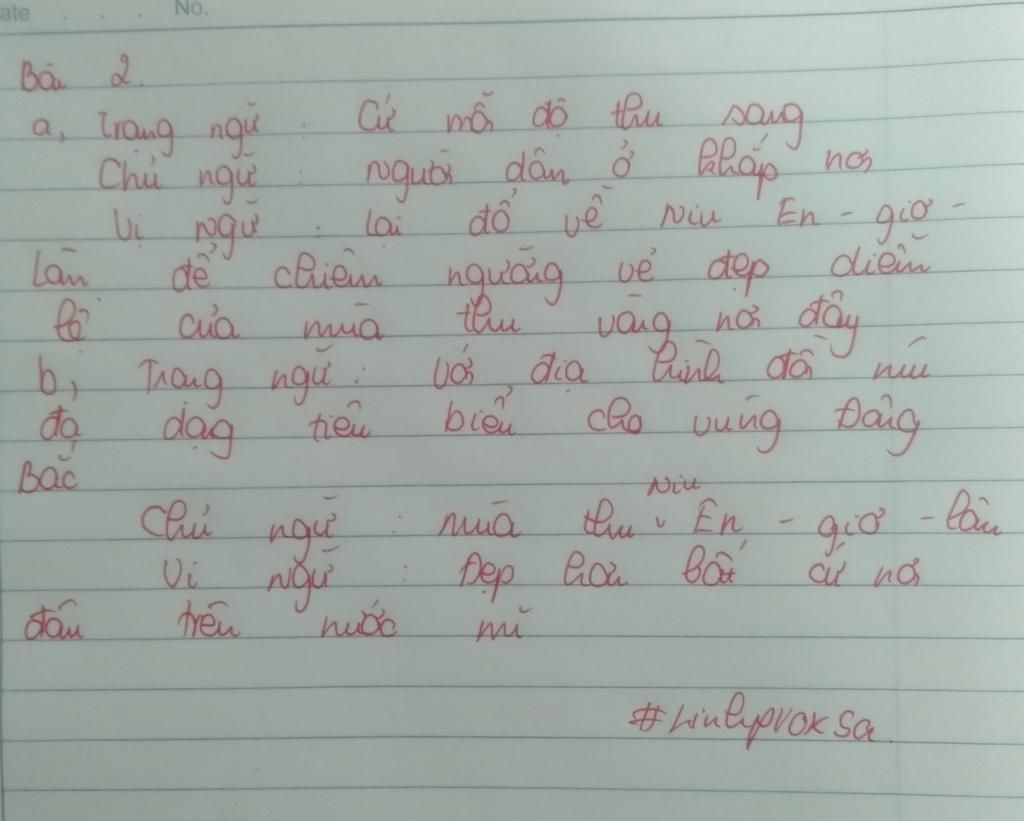 ate . . . No.
Bài 2.
a, Trạng ngữ : Cứ mỗi độ thu sang
Chủ ngữ : người dân ở khắp nơi
Vị ngữ : lại đổ về Niu En - giơ -
lân để chiêm ngưỡng vẻ đẹp diễm
lệ của mùa thu vàng nơi đây
b, Trạng ngữ : Với địa hình đồi núi
đa dạng tiêu biểu cho vùng Đông
Bắc
Chủ ngữ : mùa thu Niu En - giơ - lân
Vị ngữ : Đẹp hơn bất cứ nơi
đâu trên nước mĩ
#LinhpvoxSa.